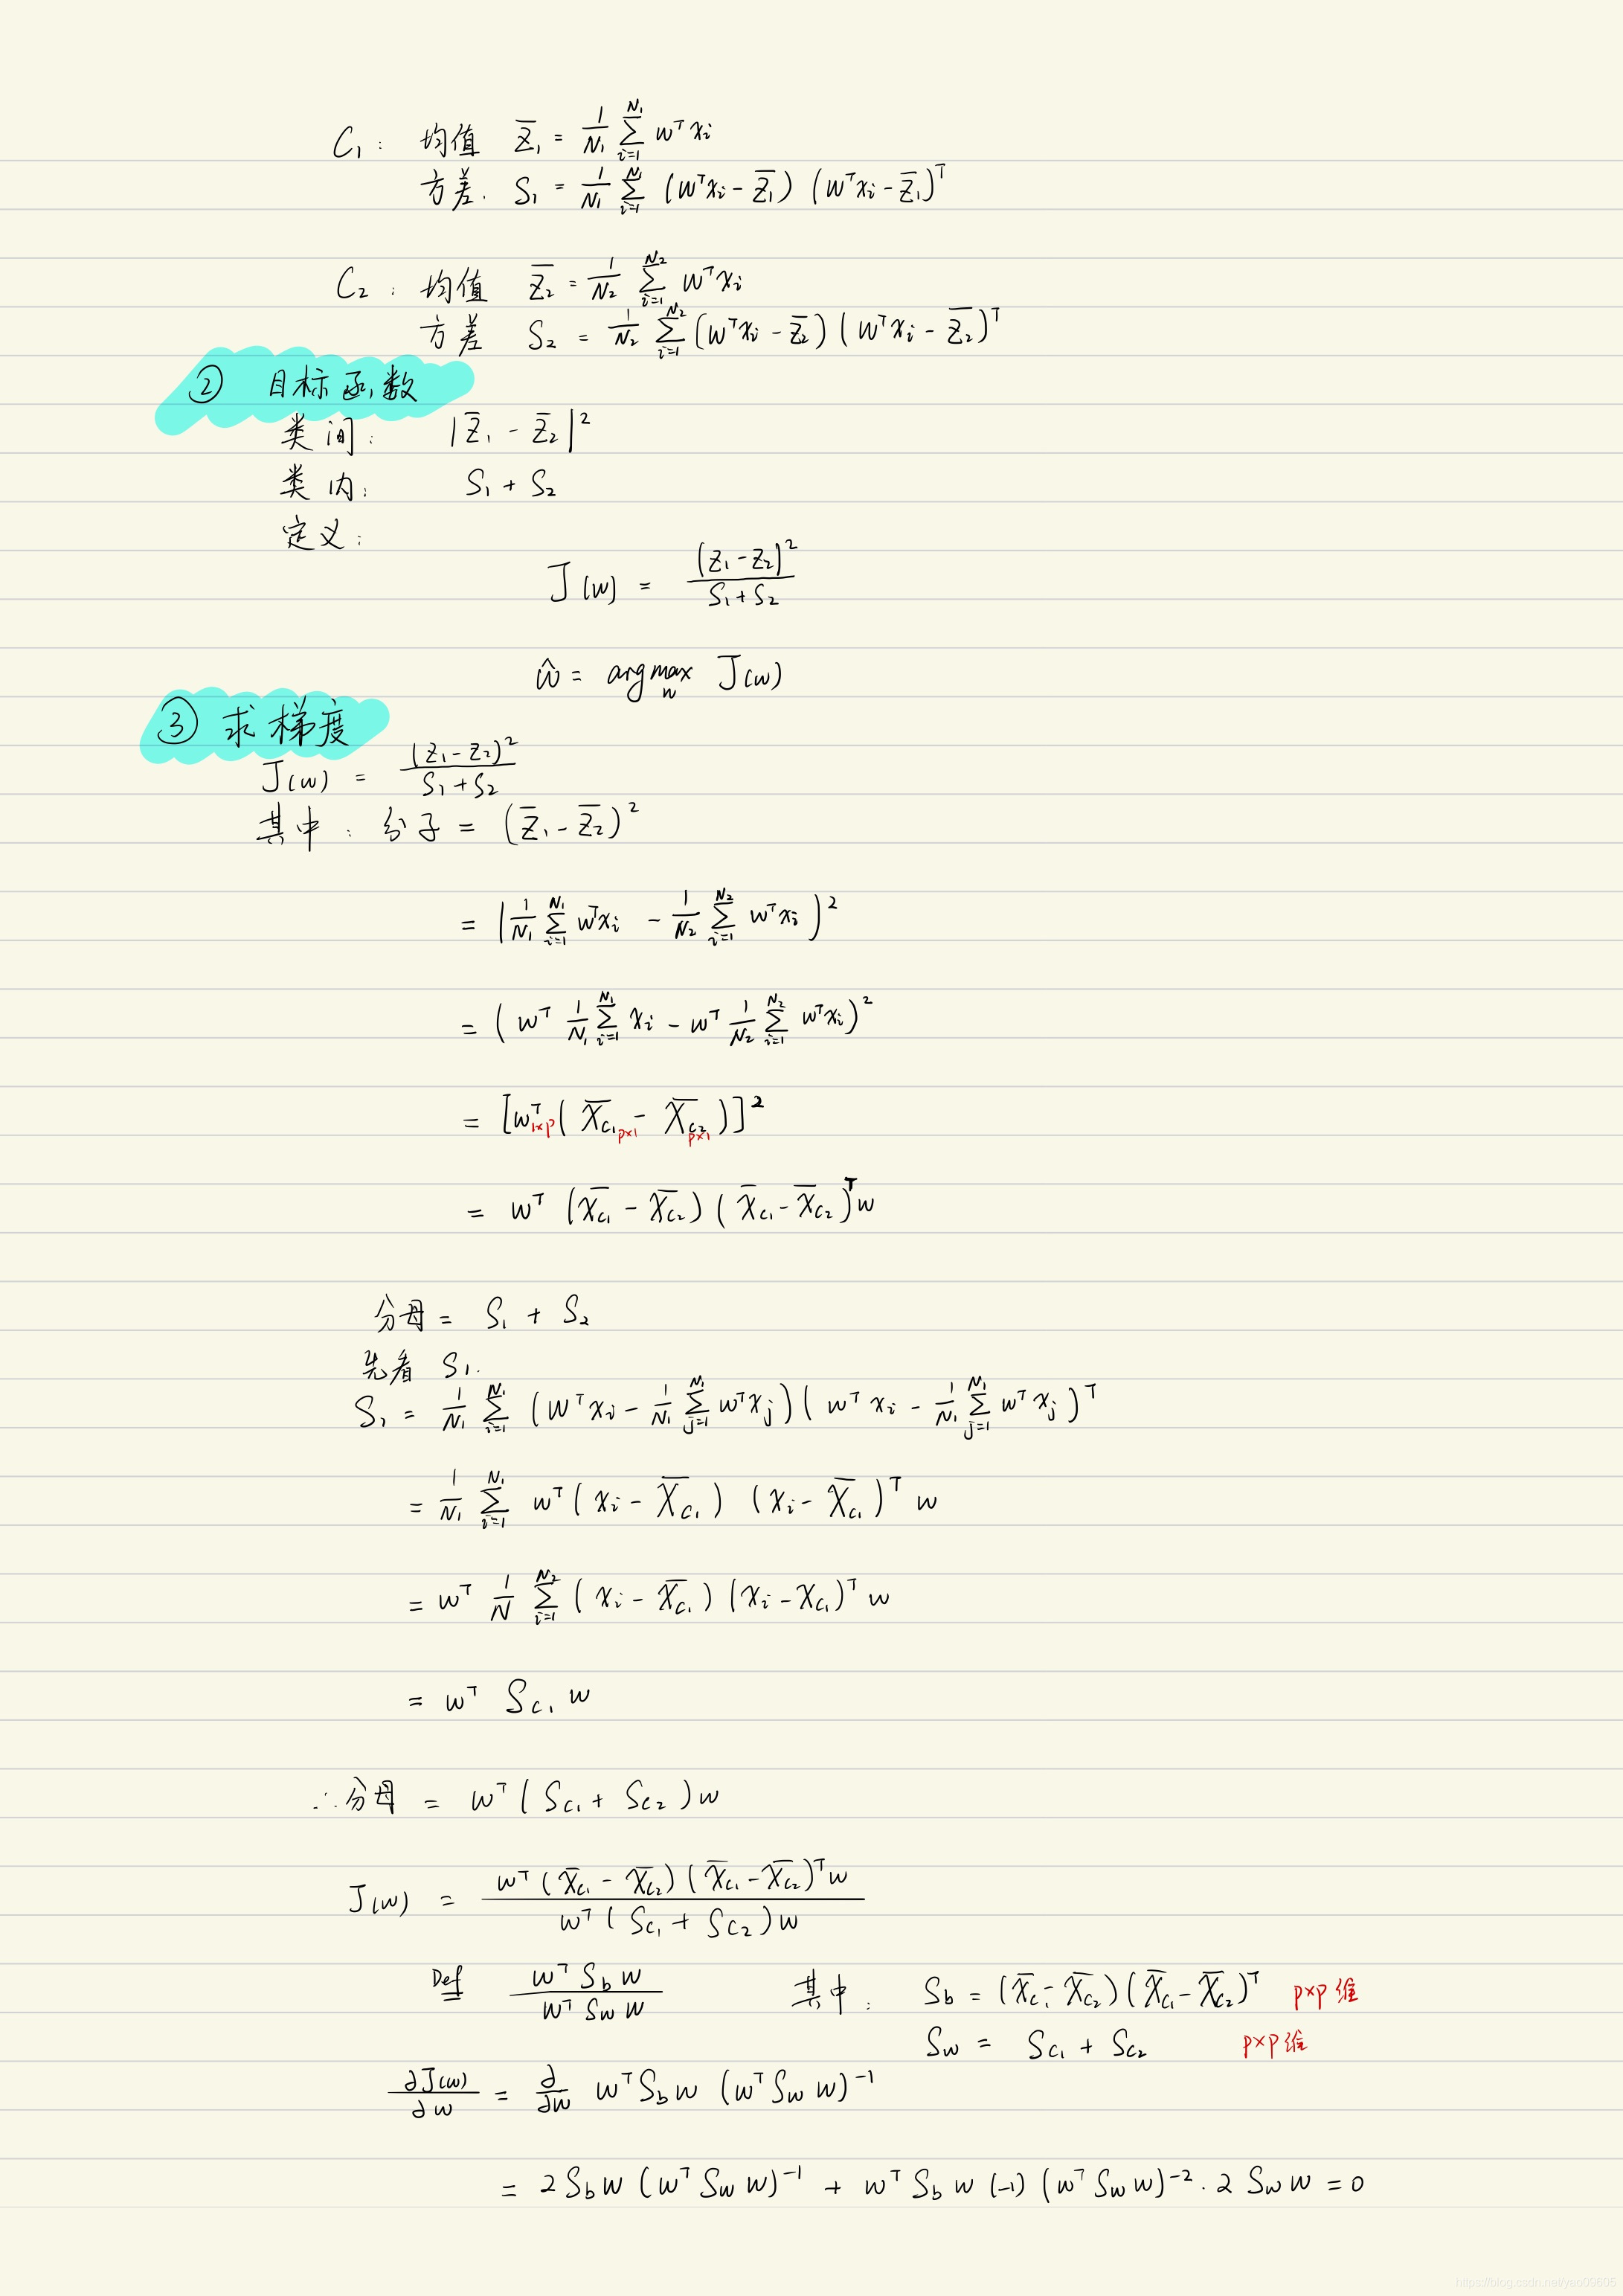 C₁: 均值 z̄₁ = 1/N₁ ∑_{i=1}^{N₁} wᵀxᵢ
方差. S₁ = 1/N₁ ∑_{i=1}^{N} (wᵀxᵢ - z̄₁) (wᵀxᵢ - z̄₁)ᵀ
C₂: 均值 z̄₂ = 1/N₂ ∑_{i=1}^{N₂} wᵀxᵢ
方差 S₂ = 1/N₂ ∑_{i=1}^{N₂} (wᵀxᵢ - z̄₂) (wᵀxᵢ - z̄₂)ᵀ
② 目标函数
类间: |z̄₁ - z̄₂|²
类内: S₁ + S₂
定义:
J(w) = (z₁ - z₂)² / (S₁ + S₂)
ŵ = argmax_w J(w)
③ 求梯度
J(w) = (z₁ - z₂)² / (S₁ + S₂)
其中: 分子 = (z̄₁ - z̄₂)²
= (1/N₁ ∑_{i=1}^{N₁} wᵀxᵢ - 1/N₂ ∑_{i=1}^{N₂} wᵀxᵢ)²
= (wᵀ 1/N₁ ∑_{i=1}^{N₁} xᵢ - wᵀ 1/N₂ ∑_{i=1}^{N₂} wᵀxᵢ)²
= [wᵀ_{1×p} (X̄_{C₁ p×1} - X̄_{C₂ p×1})]²
= wᵀ (X̄_{C₁} - X̄_{C₂}) (X̄_{C₁} - X̄_{C₂})ᵀ w
分母 = S₁ + S₂
先看 S₁.
S₁ = 1/N₁ ∑_{i=1}^{N₁} (wᵀxᵢ - 1/N₁ ∑_{j=1}^{N₁} wᵀxⱼ) (wᵀxᵢ - 1/N₁ ∑_{j=1}^{N₁} wᵀxⱼ)ᵀ
= 1/N₁ ∑_{i=1}^{N₁} wᵀ (xᵢ - X̄_{C₁}) (xᵢ - X̄_{C₁})ᵀ w
= wᵀ 1/N ∑_{i=1}^{N₂} (xᵢ - X̄_{C₁}) (xᵢ - X_{C₁})ᵀ w
= wᵀ S_{C₁} w
∴分母 = wᵀ (S_{C₁} + S_{C₂}) w
J(w) = wᵀ (X̄_{C₁} - X̄_{C₂}) (X̄_{C₁} - X̄_{C₂})ᵀ w / wᵀ (S_{C₁} + S_{C₂}) w
Def = wᵀ S_b w / wᵀ S_w w 其中: S_b = (X̄_{C₁} - X̄_{C₂}) (X̄_{C₁} - X̄_{C₂})ᵀ p×p维
S_w = S_{C₁} + S_{C₂} p×p维
∂J(w)/∂w = ∂/∂w wᵀ S_b w (wᵀ S_w w)⁻¹
= 2 S_b w (wᵀ S_w w)⁻¹ + wᵀ S_b w (-1) (wᵀ S_w w)⁻² · 2 S_w w = 0
https://blog.csdn.net/yao09605